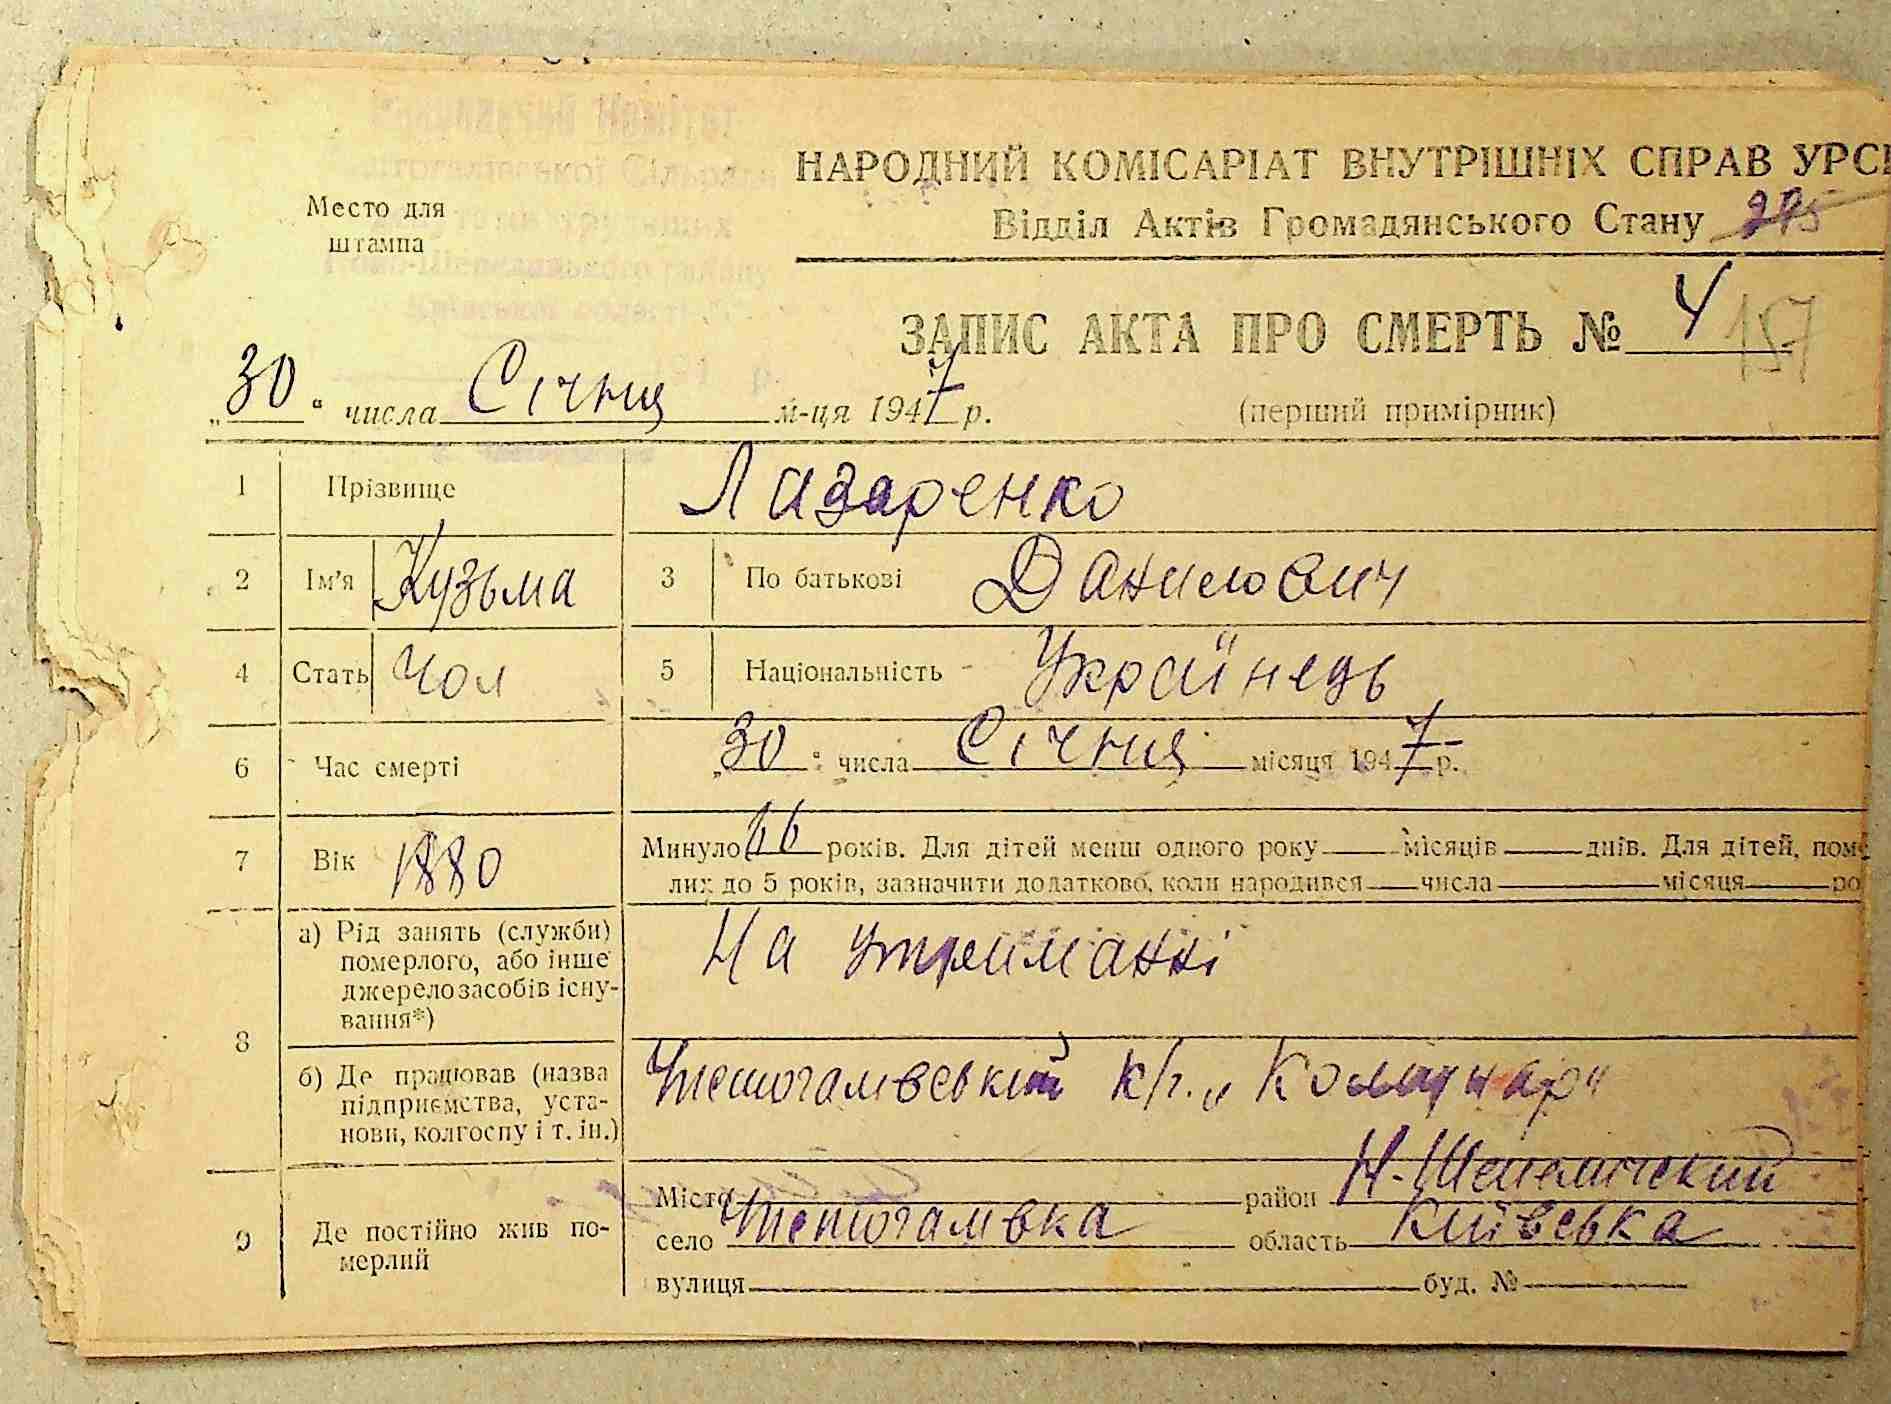 Виконавчий Комітет
Сільради
району
Київської області
Место для
штампа
НАРОДНИЙ КОМІСАРІАТ ВНУТРІШНІХ СПРАВ УРСР
Відділ Актів Громадянського Стану 275
ЗАПИС АКТА ПРО СМЕРТЬ № 4 157
„30“ числа Січня м-ця 1947 р.
(перший примірник)
1 Прізвище Лазаренко
2 Ім'я Кузьма 3 По батькові Данилович
4 Стать Чол 5 Національність Українець
6 Час смерті „30“ числа Січня місяця 1947 р.
7 Вік 1880 Минуло 66 років. Для дітей менш одного року місяців днів. Для дітей, поме
лих до 5 років, зазначити додатково, коли народився числа місяця ро
8 а) Рід занять (служби)
померлого, або інше
джерело засобів існу-
вання*)
На утриманні
б) Де працював (назва
підприємства, уста-
нови, колгоспу і т. ін.)
к/г. „Комунар"
9 Де постійно жив по-
мерлий
Місто район Н-Шепелический
село область Київська
вулиця буд. №